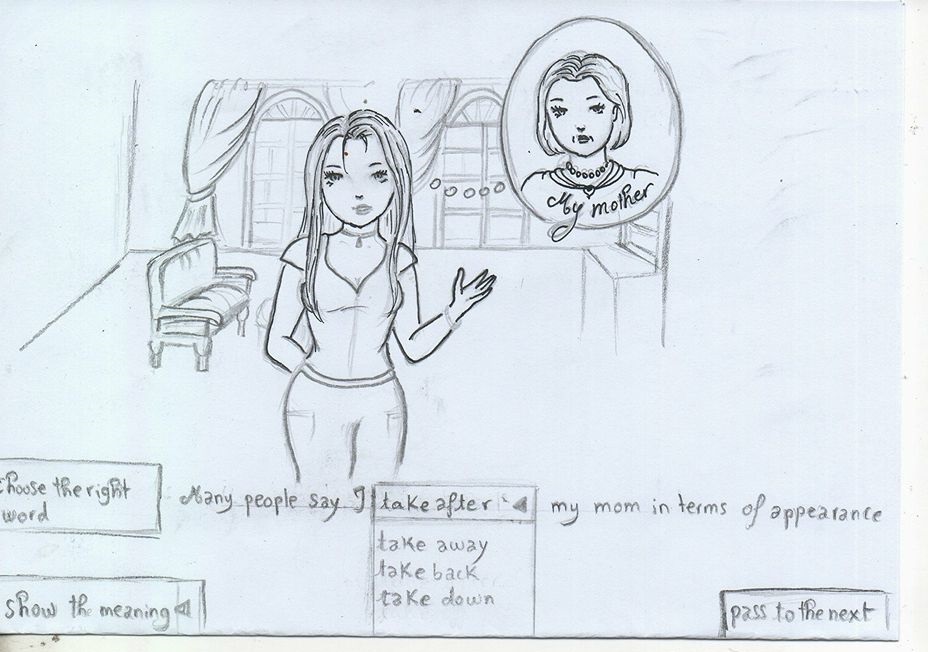 My mother
Choose the right
word
Many people say I take after my mom in terms of appearance
take away
take back
take down
show the meaning
pass to the next